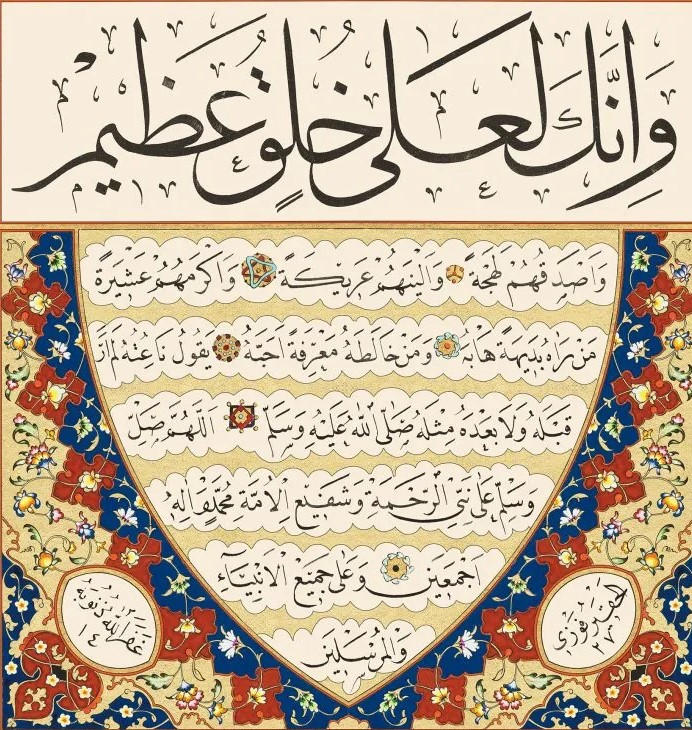 وَاِنَّكَ لَعَلٰى خُلُقٍ عَظِيمٍ
وَاَصْدَقُهُمْ لَهْجَةً وَاَلْيَنُهُمْ عَرِيكَةً وَاَكْرَمُهُمْ عَشِيرَةً
مَنْ رَاٰهُ بَدِيهَةً هَابَهُ وَمَنْ خَالَطَهُ مَعْرِفَةً اَحَبَّهُ يَقُولُ نَاعِتُهُ لَمْ اَرَ
قَبْلَهُ وَلَا بَعْدَهُ مِثْلَهُ صَلَّى اللّٰهُ عَلَيْهِ وَسَلَّمَ اَللّٰهُمَّ صَلِّ
وَسَلِّمْ عَلٰى نَبِيِّ الرَّحْمَةِ وَشَفِيعِ الْاُمَّةِ مُحَمَّدٍ وَاٰلِهِ
اَجْمَعِينَ وَعَلٰى جَمِيعِ الْاَنْبِيَاءِ
وَالْمُرْسَلِينَ
الحقير فوزى
٢٧
غفر الله ذنوبه
١٤